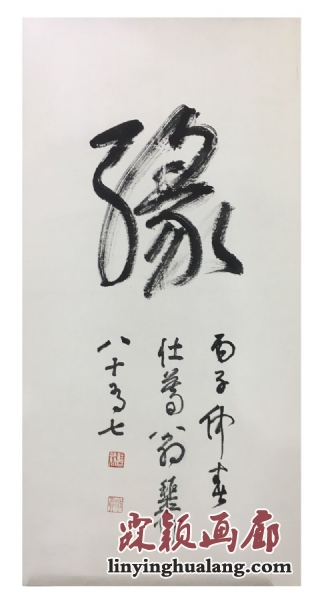 緣
丙子仲春
翁
八十有七
霖颖画廊
linyinghualang.com